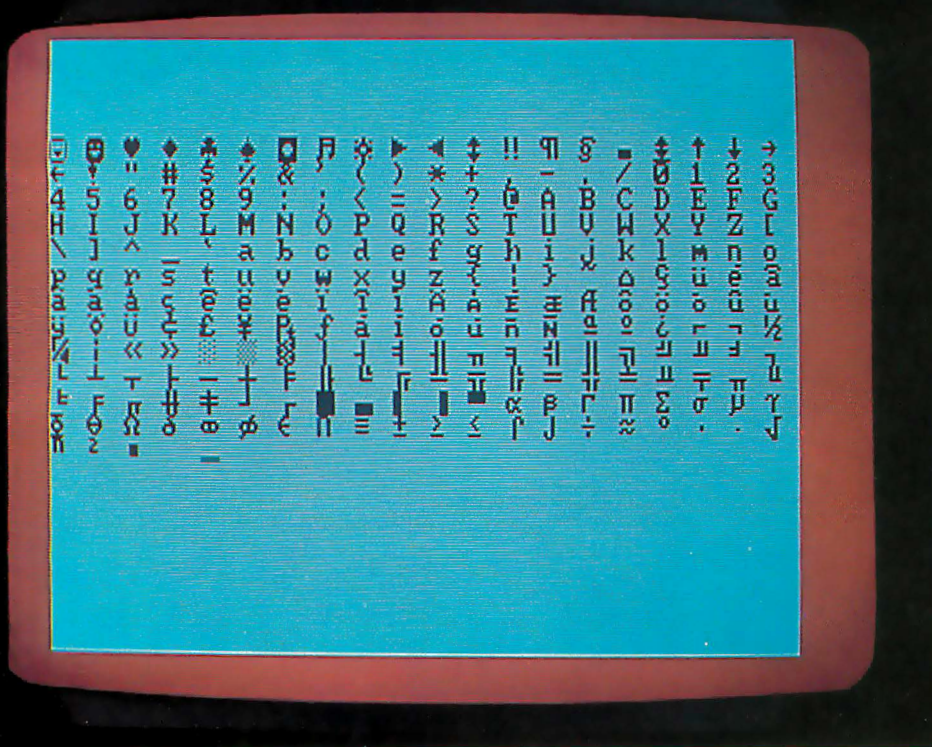 ☺ ☻ ♥ ♦ ♣ ♠ ◘ ♫ ☼ ► ◄ ↕ ‼ ¶ § ▬ ↨ ↑ ↓ →
← ! " # $ % & ' ( ) * + , - . / 0 1 2 3
4 5 6 7 8 9 : ; < = > ? @ A B C D E F G
H I J K L M N O P Q R S T U V W X Y Z [
\ ] ^ _ ` a b c d e f g h i j k l m n o
p q r s t u v w x y z { | } ~ ⌂ Ç ü é â
ä à å ç ê ë è ï î ì Ä Å É æ Æ ô ö ò û ù
ÿ Ö Ü ¢ £ ¥ ₧ ƒ á í ó ú ñ Ñ ª º ¿ ⌐ ¬ ½
¼ ¡ « » ░ ▒ ▓ │ ┤ ╡ ╢ ╖ ╕ ╣ ║ ╗ ╝ ╜ ╛ ┐
└ ┴ ┬ ├ ─ ┼ ╞ ╟ ╚ ╔ ╩ ╦ ╠ ═ ╬ ╧ ╨ ╤ ╥ ╙
╘ ╒ ╓ ╫ ╪ ┘ ┌ █ ▄ ▌ ▐ ▀ α β Γ π Σ σ µ τ
Φ Θ Ω δ ∞ φ ε ∩ ≡ ± ≥ ≤ ⌠ ⌡ ÷ ≈ ° ∙ · √
ⁿ ² ■ _